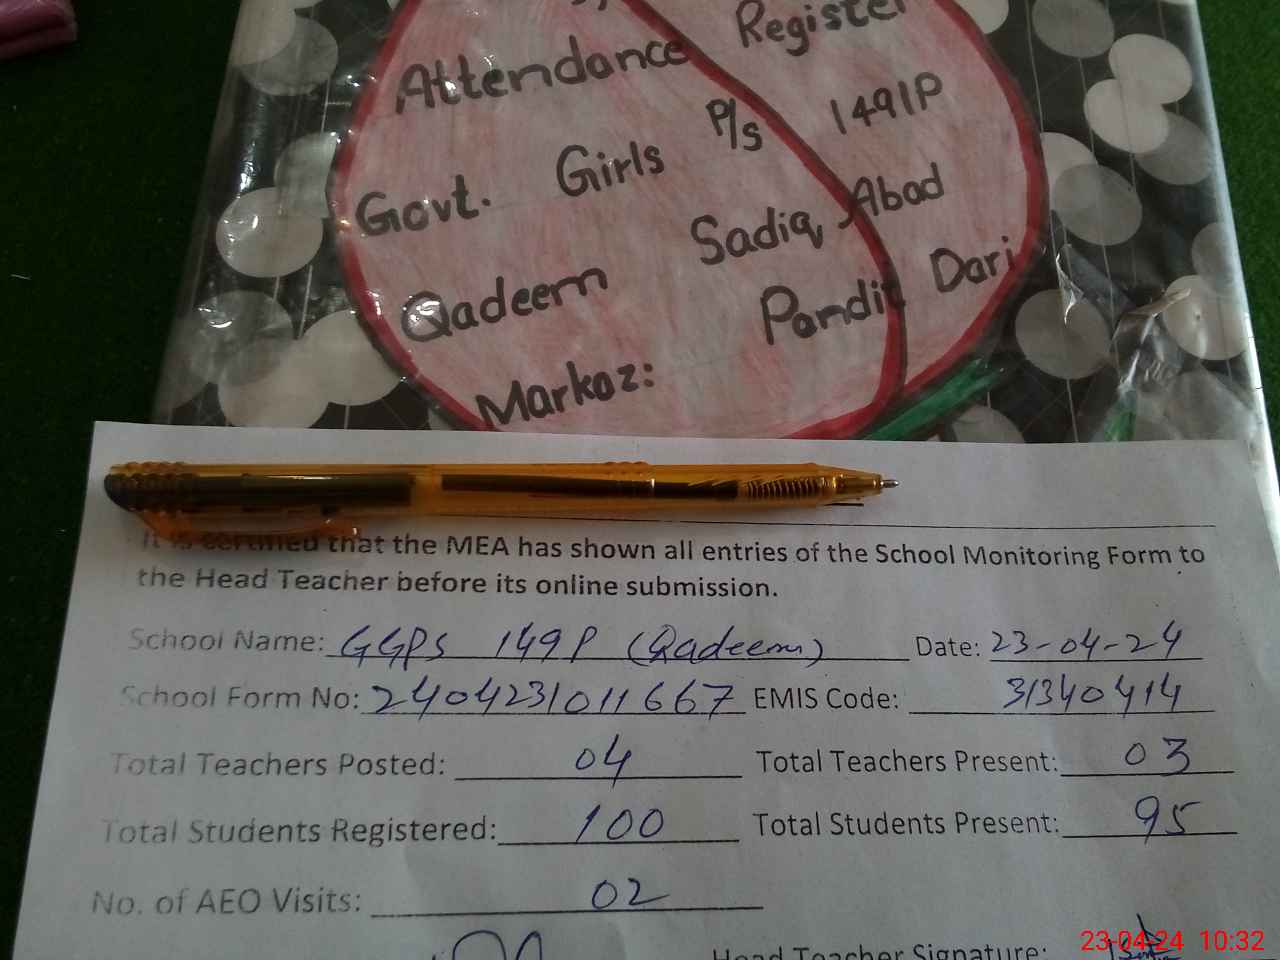 Attendance Register
Govt. Girls P/s 1491P
Qadeem Sadiq Abad
Markaz: Pandit Dari
It is certified that the MEA has shown all entries of the School Monitoring Form to
the Head Teacher before its online submission.
School Name: GGPS 149P (Qadeem) Date: 23-04-24
School Form No: 2404231011667 EMIS Code: 31340414
Total Teachers Posted: 04 Total Teachers Present: 03
Total Students Registered: 100 Total Students Present: 95
No. of AEO Visits: 02
Head Teacher Signature:
23-04-24 10:32